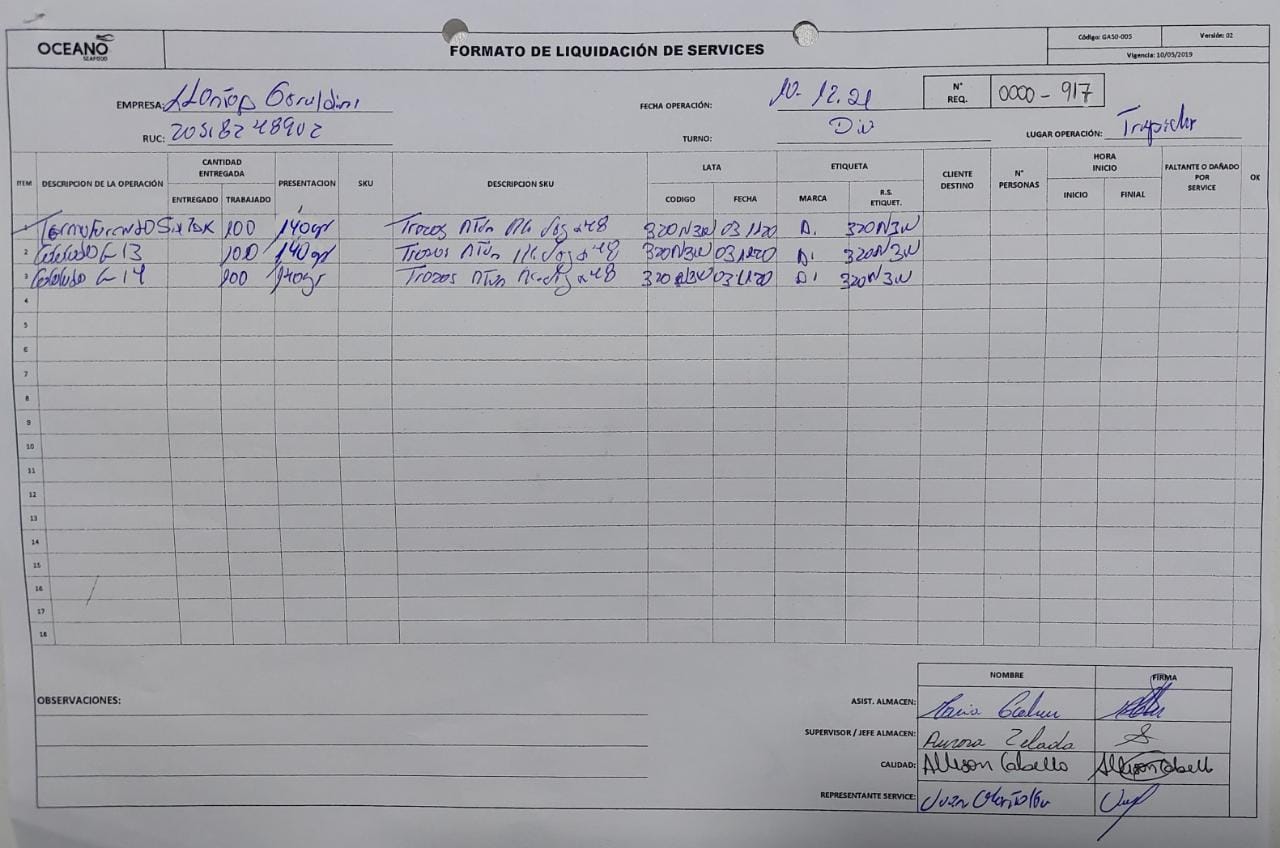 OCEANO
SEAFOOD
FORMATO DE LIQUIDACIÓN DE SERVICES
Código: GASO-005 Versión: 02
Vigencia: 10/05/2019
EMPRESA:
RUC: 20518248902
FECHA OPERACIÓN: 10. 12.21
TURNO: Dia
N° REQ. 0000 - 917
LUGAR OPERACIÓN:
ITEM DESCRIPCION DE LA OPERACIÓN CANTIDAD ENTREGADA ENTREGADO TRABAJADO PRESENTACION SKU DESCRIPCION SKU LATA CODIGO FECHA ETIQUETA MARCA R.S. ETIQUET. CLIENTE DESTINO N° PERSONAS HORA INICIO INICIO FINIAL FALTANTE O DAÑADO POR SERVICE OK
1 100 140gr Trozos x48 320N3W 031120 320N3W
2 100 140gr Trozos x48 320N3W 031120 320N3W
3 140gr Trozos x48 320N3W 031120 320N3W
4
5
6
7
8
9
10
11
12
13
14
15
16
17
18
OBSERVACIONES:
NOMBRE FIRMA
ASIST. ALMACEN:
SUPERVISOR / JEFE ALMACEN: Aurora Zelada
CALIDAD: Allison Cabello Allison Cabello
REPRESENTANTE SERVICE: Juan